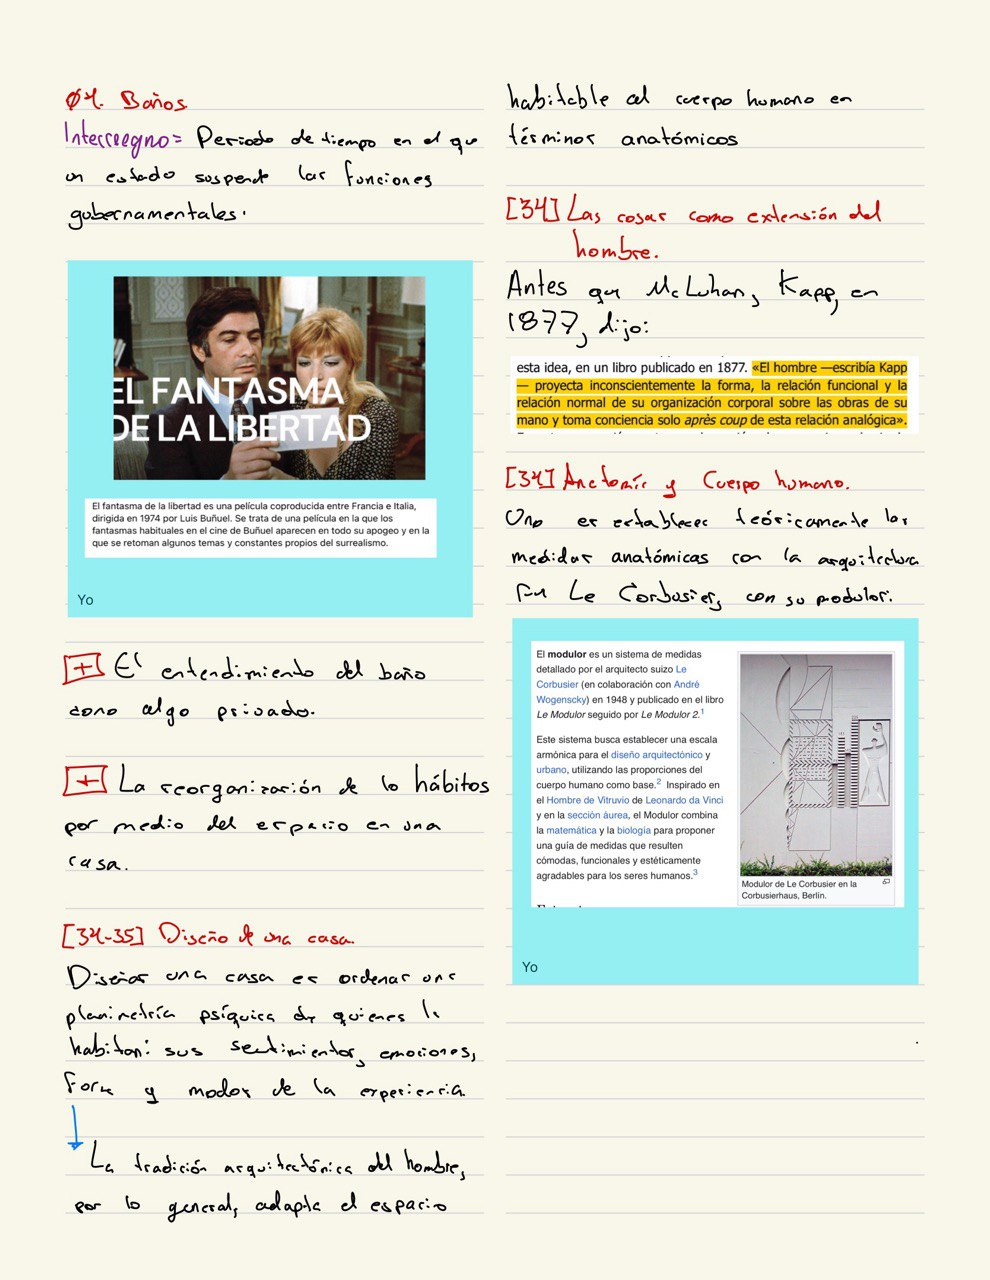 04. Baños
Interregno= Periodo de tiempo en el que
un estado suspende las funciones
gubernamentales.
EL FANTASMA
DE LA LIBERTAD
El fantasma de la libertad es una película coproducida entre Francia e Italia,
dirigida en 1974 por Luis Buñuel. Se trata de una película en la que los
fantasmas habituales en el cine de Buñuel aparecen en todo su apogeo y en la
que se retoman algunos temas y constantes propios del surrealismo.
Yo
[+] El entendimiento del baño
como algo privado.
[+] La reorganización de lo hábitos
por medio del espacio en una
casa.
[34-35] Diseño de una casa.
Diseñar una casa es ordenar una
planimetría psíquica de quienes la
habitan: sus sentimientos, emociones,
forma y modos de la experiencia.
↓
La tradición arquitectónica del hombre,
por lo general, adapta el espacio
habitable al cuerpo humano en
términos anatómicos
[34] Las cosas como extensión del
hombre.
Antes que McLuhan, Kapp, en
1877, dijo:
esta idea, en un libro publicado en 1877. «El hombre —escribía Kapp
— proyecta inconscientemente la forma, la relación funcional y la
relación normal de su organización corporal sobre las obras de su
mano y toma conciencia solo après coup de esta relación analógica».
[34] Anatomía y Cuerpo humano.
Uno es establecer teóricamente las
medidas anatómicas con la arquitectura
Fue Le Corbusier, con su modulor.
El modulor es un sistema de medidas
detallado por el arquitecto suizo Le
Corbusier (en colaboración con André
Wogenscky) en 1948 y publicado en el libro
Le Modulor seguido por Le Modulor 2.1
Este sistema busca establecer una escala
armónica para el diseño arquitectónico y
urbano, utilizando las proporciones del
cuerpo humano como base.2 Inspirado en
el Hombre de Vitruvio de Leonardo da Vinci
y en la sección áurea, el Modulor combina
la matemática y la biología para proponer
una guía de medidas que resulten
cómodas, funcionales y estéticamente
agradables para los seres humanos.3
Modulor de Le Corbusier en la
Corbusierhaus, Berlín.
Yo